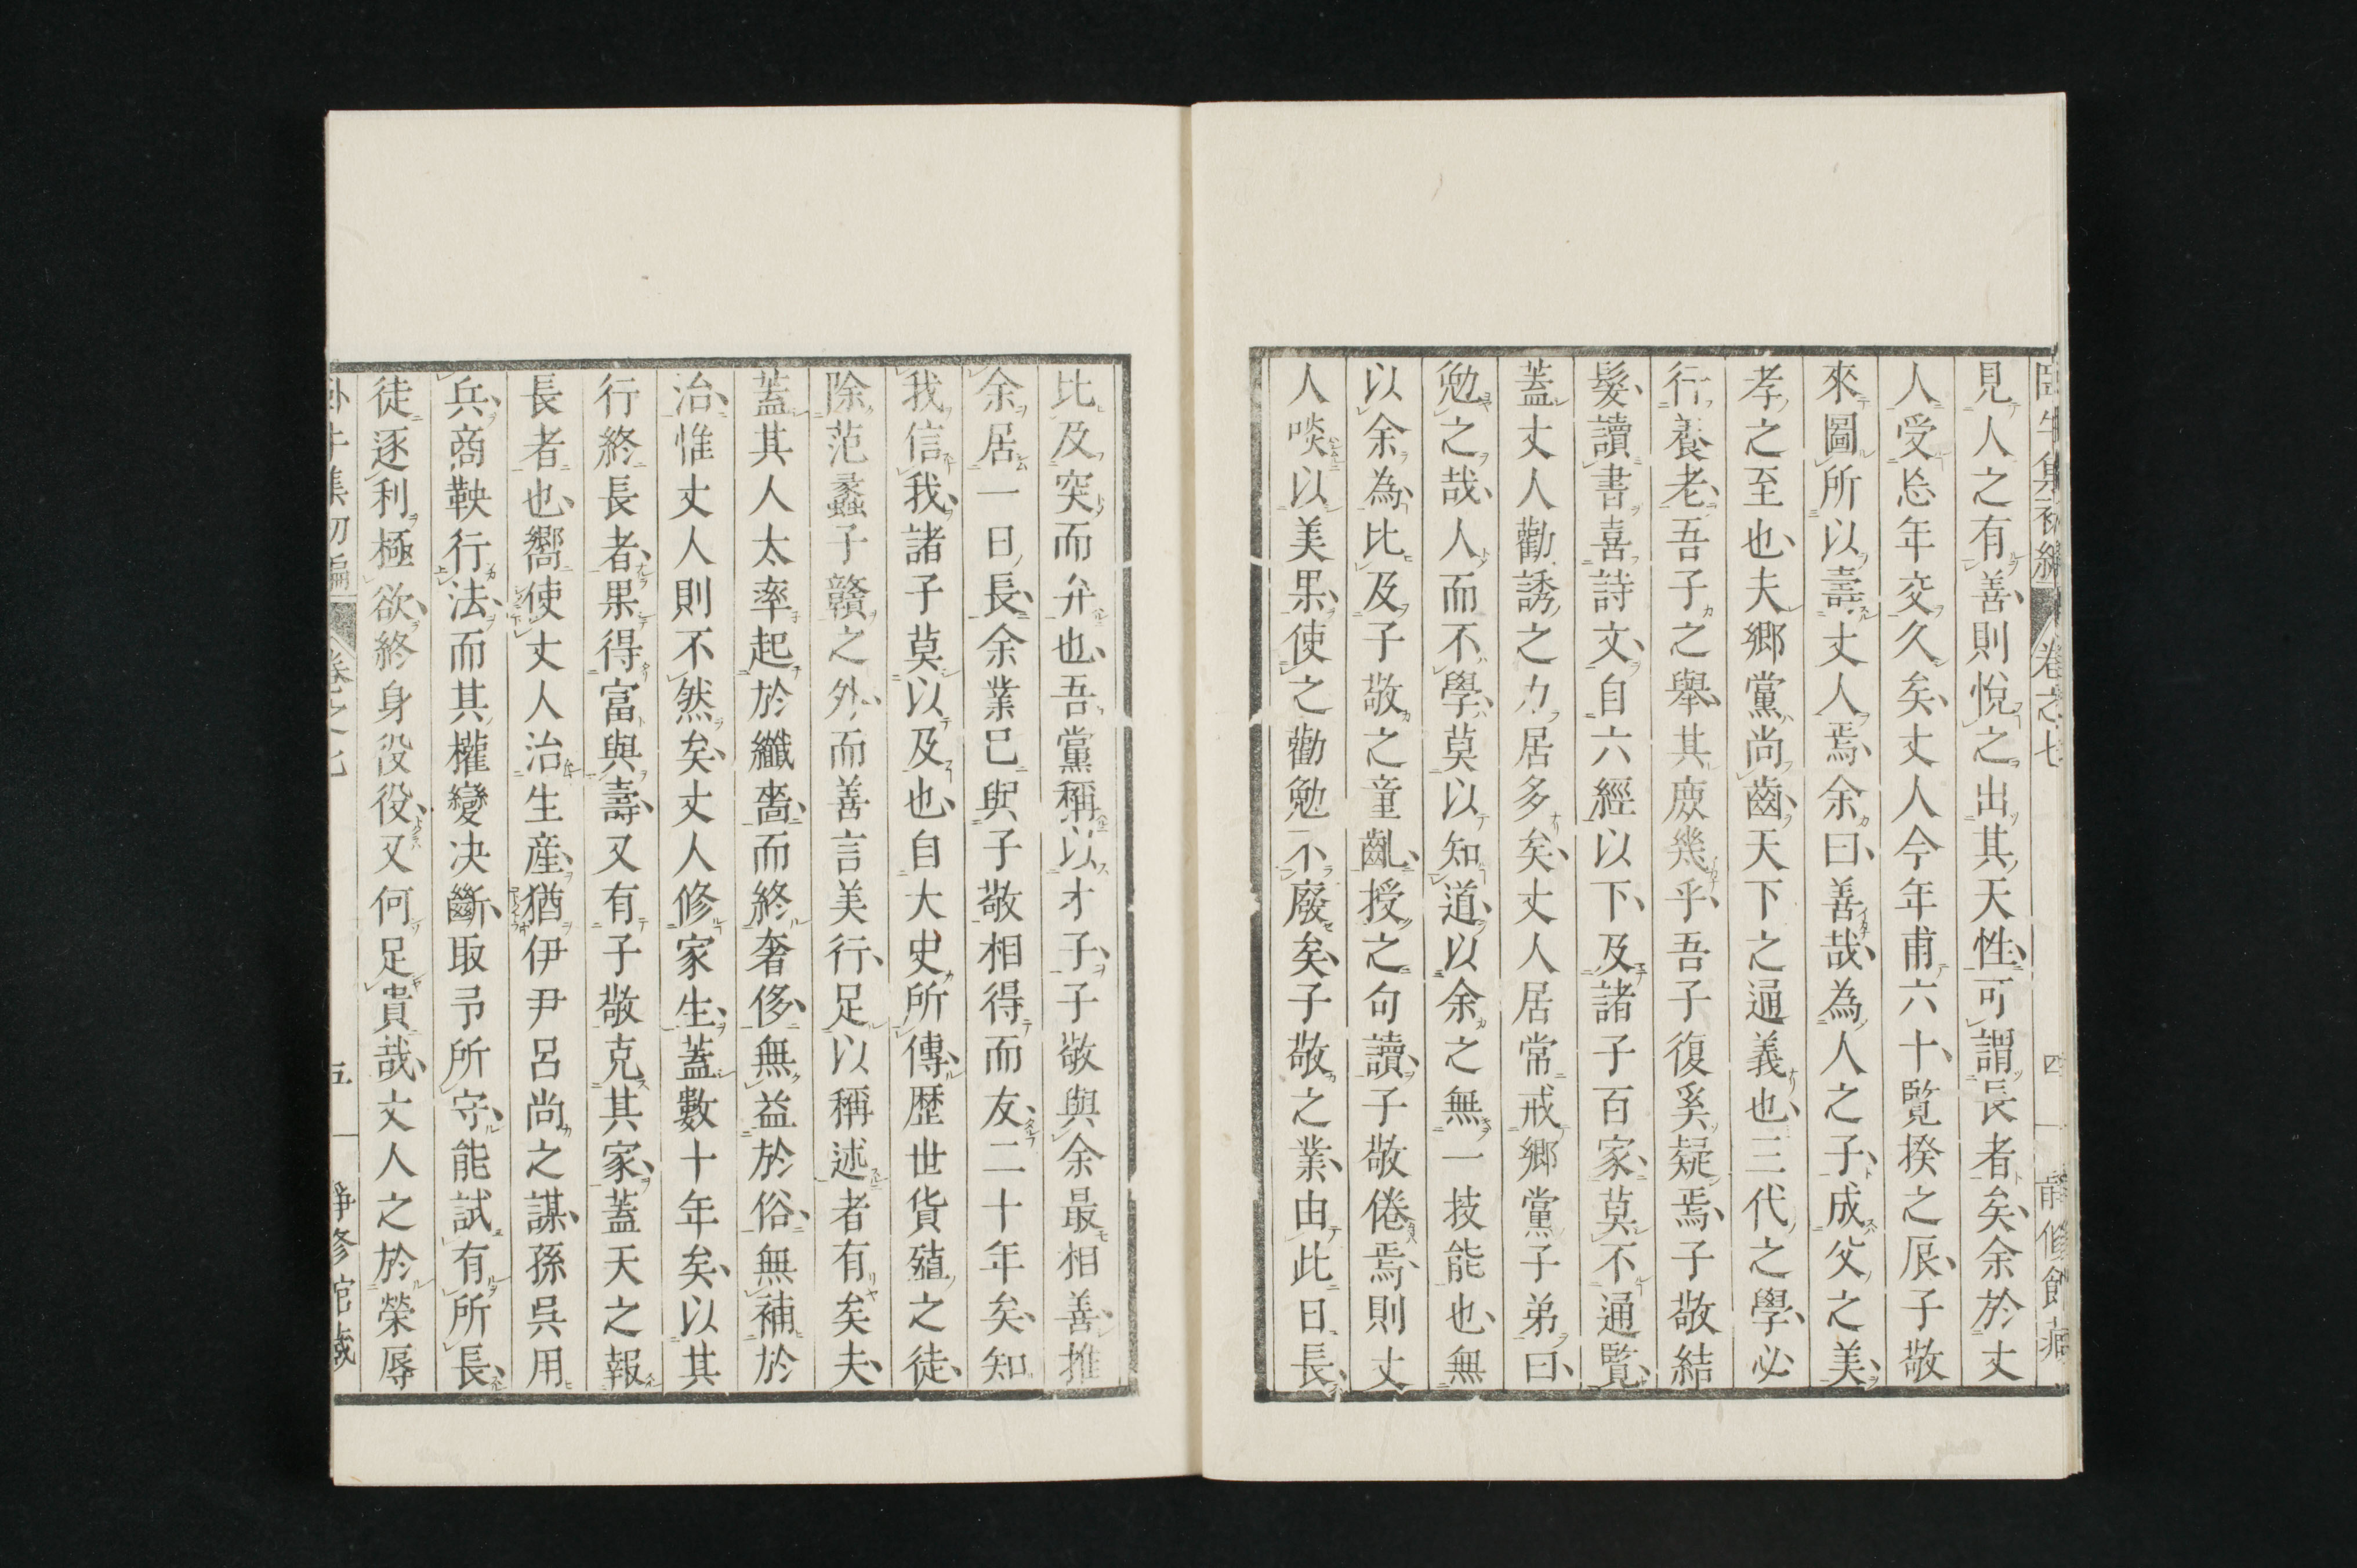 臥牛集初編 卷之七 四 靜修館藏
見人之有善則悅之出其天性可謂長者矣余於丈
人受忘年交久矣丈人今年甫六十覽揆之辰子敬
來圖所以壽丈人焉余曰善哉為人之子成父之美
孝之至也夫鄉黨尚齒天下之通義也三代之學必
行養老吾子之舉其庶幾乎吾子復奚疑焉子敬結
髮讀書喜詩文自六經以下及諸子百家莫不通覽
蓋丈人勸誘之力居多矣丈人居常戒鄉黨子弟曰
勉之哉人而不學莫以知道以余之無一技能也無
以余為比及子敬之童齓授之句讀子敬倦焉則丈
人啖以美果使之勸勉不廢矣子敬之業由此日長
比及突而弁也吾黨稱以才子子敬與余最相善推
余居一日長余業已與子敬相得而友二十年矣知
我信我諸子莫以及也自大史所傳歷世貨殖之徒
除范蠡子贛之外而善言美行足以稱述者有矣夫
蓋其人太率起於纖嗇而終奢侈無益於俗無補於
治惟丈人則不然矣丈人修家生蓋數十年矣以其
行終長者果得富與壽又有子敬克其家蓋天之報
長者也嚮使丈人治生產猶伊尹呂尚之謀孫吳用
兵商鞅行法而其權變決斷取予所守能試有所長
徒逐利極欲終身役役又何足貴哉丈人之於榮辱
臥牛集初編 卷之七 五 靜修館藏